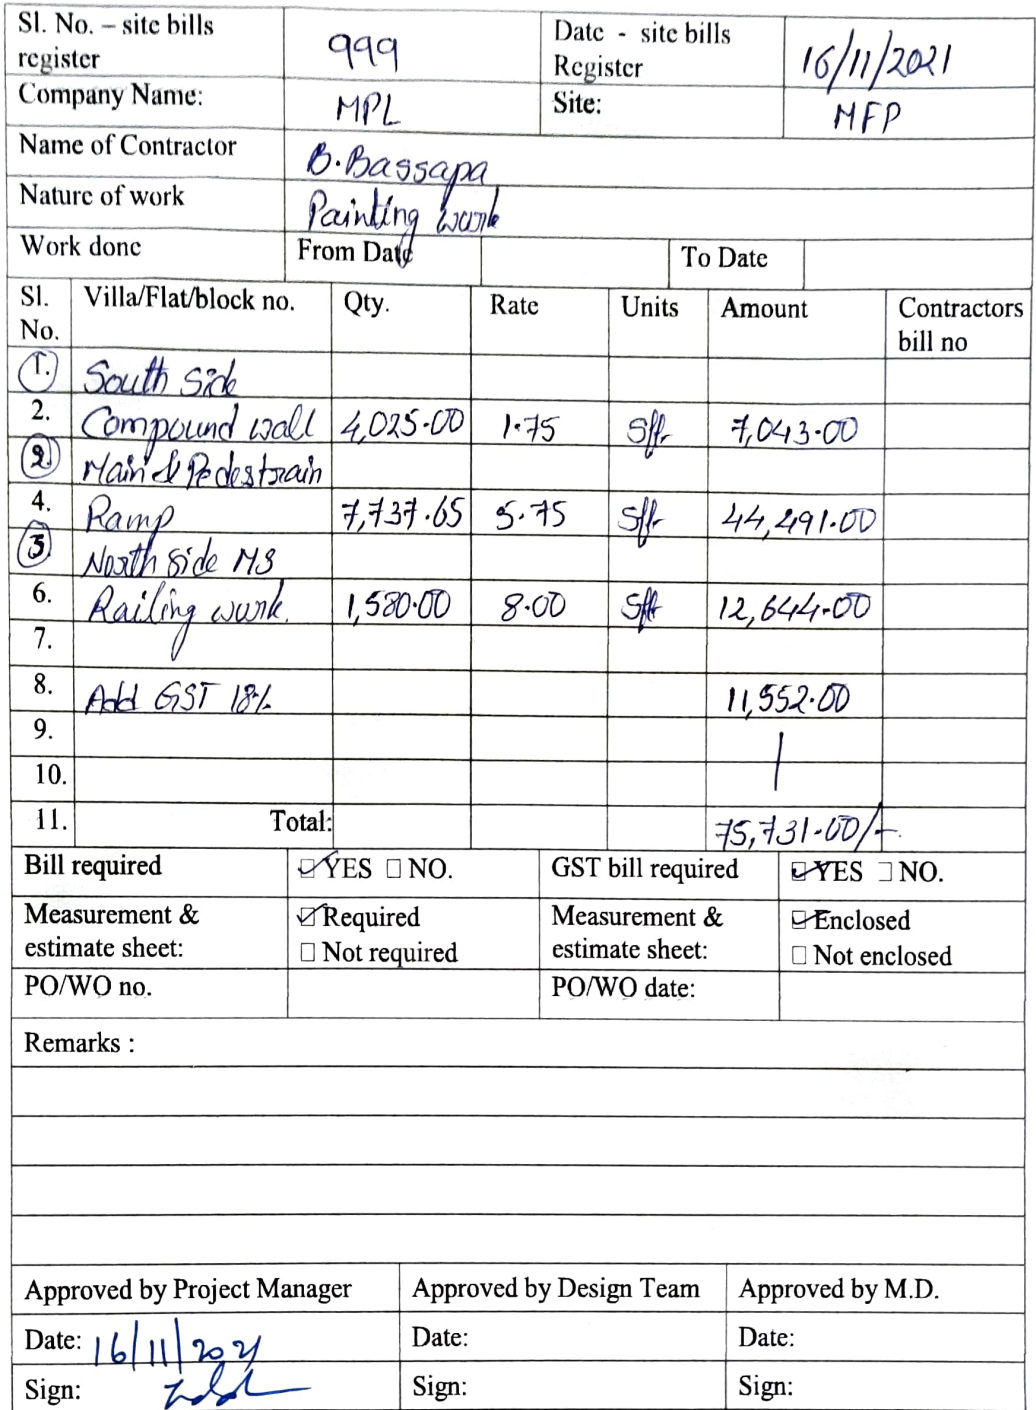 Sl. No. – site bills register 999 Date - site bills Register 16/11/2021
Company Name: MPL Site: MFP
Name of Contractor B. Bassapa
Nature of work Painting work
Work done From Date To Date
Sl. No. Villa/Flat/block no. Qty. Rate Units Amount Contractors bill no
1. South Side
2. Compound wall 4,025.00 1.75 Sft 7,043.00
2. Main & Pedestrain
4. Ramp 7,737.65 5.75 Sft 44,491.00
3 North side MS
6. Railing work. 1,580.00 8.00 Sft 12,644.00
7.
8. Add GST 18% 11,552.00
9.
10.
11. Total: 75,731.00/-
Bill required ☑ YES ☐ NO. GST bill required ☑ YES ☐ NO.
Measurement & estimate sheet: ☑ Required ☐ Not required Measurement & estimate sheet: ☑ Enclosed ☐ Not enclosed
PO/WO no. PO/WO date:
Remarks :
Approved by Project Manager Approved by Design Team Approved by M.D.
Date: 16/11/2021 Date: Date:
Sign: Sign: Sign: